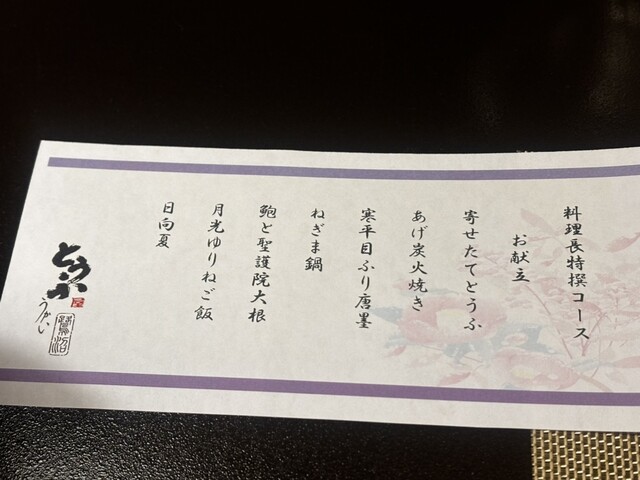 料理長特撰コース
お献立
寄せたてとうふ
あげ炭火焼き
寒平目ふり唐墨
ねぎま鍋
鮑と聖護院大根
月光ゆりねご飯
日向夏
とうふ
うかい